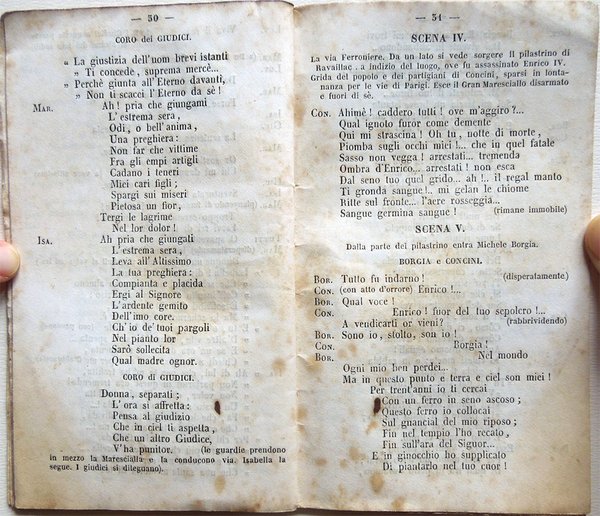 — 50 —
CORO dei GIUDICI.
„ La giustizia dell'uom brevi istanti
„ Ti concede, suprema mercè...
„ Perchè giunta all'Eterno davanti,
„ Non ti scacci l'Eterno da sè!
MAR. Ah! pria che giungami
L'estrema sera,
Odi, o bell'anima,
Una preghiera:
Non far che vittime
Fra gli empi artigli
Cadano i teneri
Miei cari figli;
Spargi sui miseri
Pietosa un fior,
Tergi le lagrime
Nel lor dolor!
ISA. Ah pria che giungati
L'estrema sera,
Leva all'Altissimo
La tua preghiera:
Compianta e placida
Ergi al Signore
L'ardente gemito
Dell'imo core.
Ch'io de' tuoi pargoli
Nel pianto lor
Sarò sollecita
Qual madre ognor.
CORO di GIUDICI.
Donna, separati;
L'ora si affretta:
Pensa al giudizio
Che in ciel ti aspetta,
Che un altro Giudice,
V'ha punitor. (le guardie prendono
in mezzo la Marescialla e la conducono via. Isabella la
segue. I giudici si dileguano).
— 51 —
SCENA IV.
La via Ferroniere. Da un lato si vede sorgere il pilastrino di
Ravaillac, a indizio del luogo, ove fu assassinato Enrico IV.
Grida del popolo e dei partigiani di Concini, sparsi in lonta-
nanza per le vie di Parigi. Esce il Gran Maresciallo disarmato
e fuori di sè.
CON. Ahimè! caddero tutti! ove m'aggiro?...
Qual ignoto furor come demente
Qui mi strascina! Oh tu, notte di morte,
Piomba sugli occhi miei!... che in quel fatale
Sasso non vegga! arrestati... tremenda
Ombra d'Enrico... arrestati! non esca
Dal seno tuo quel grido... ah!... il regal manto
Ti gronda sangue!.. mi gelan le chiome
Ritte sul fronte... l'aere rosseggia...
Sangue germina sangue! (rimane immobile)
SCENA V.
Dalla parte del pilastrino entra Michele Borgia.
BORGIA e CONCINI.
BOR. Tutto fu indarno! (disperatamente)
CON. (con atto d'orrore) Enrico!...
BOR. Qual voce!
CON. Enrico! fuor del tuo sepolcro!...
A vendicarti or vieni? (rabbrividendo)
BOR. Sono io, stolto, son io!
CON. Borgia!
BOR. Nel mondo
Ogni mio ben perdei..
Ma in questo punto e terra e ciel son miei!
Per trent'anni io ti cercai
Con un ferro in seno ascoso;
Questo ferro io collocai
Sul guancial del mio riposo;
Fin nel tempio l'ho recato,
Fin sull'ara del Signor...
E in ginocchio ho supplicato
Di piantarlo nel tuo cuor!